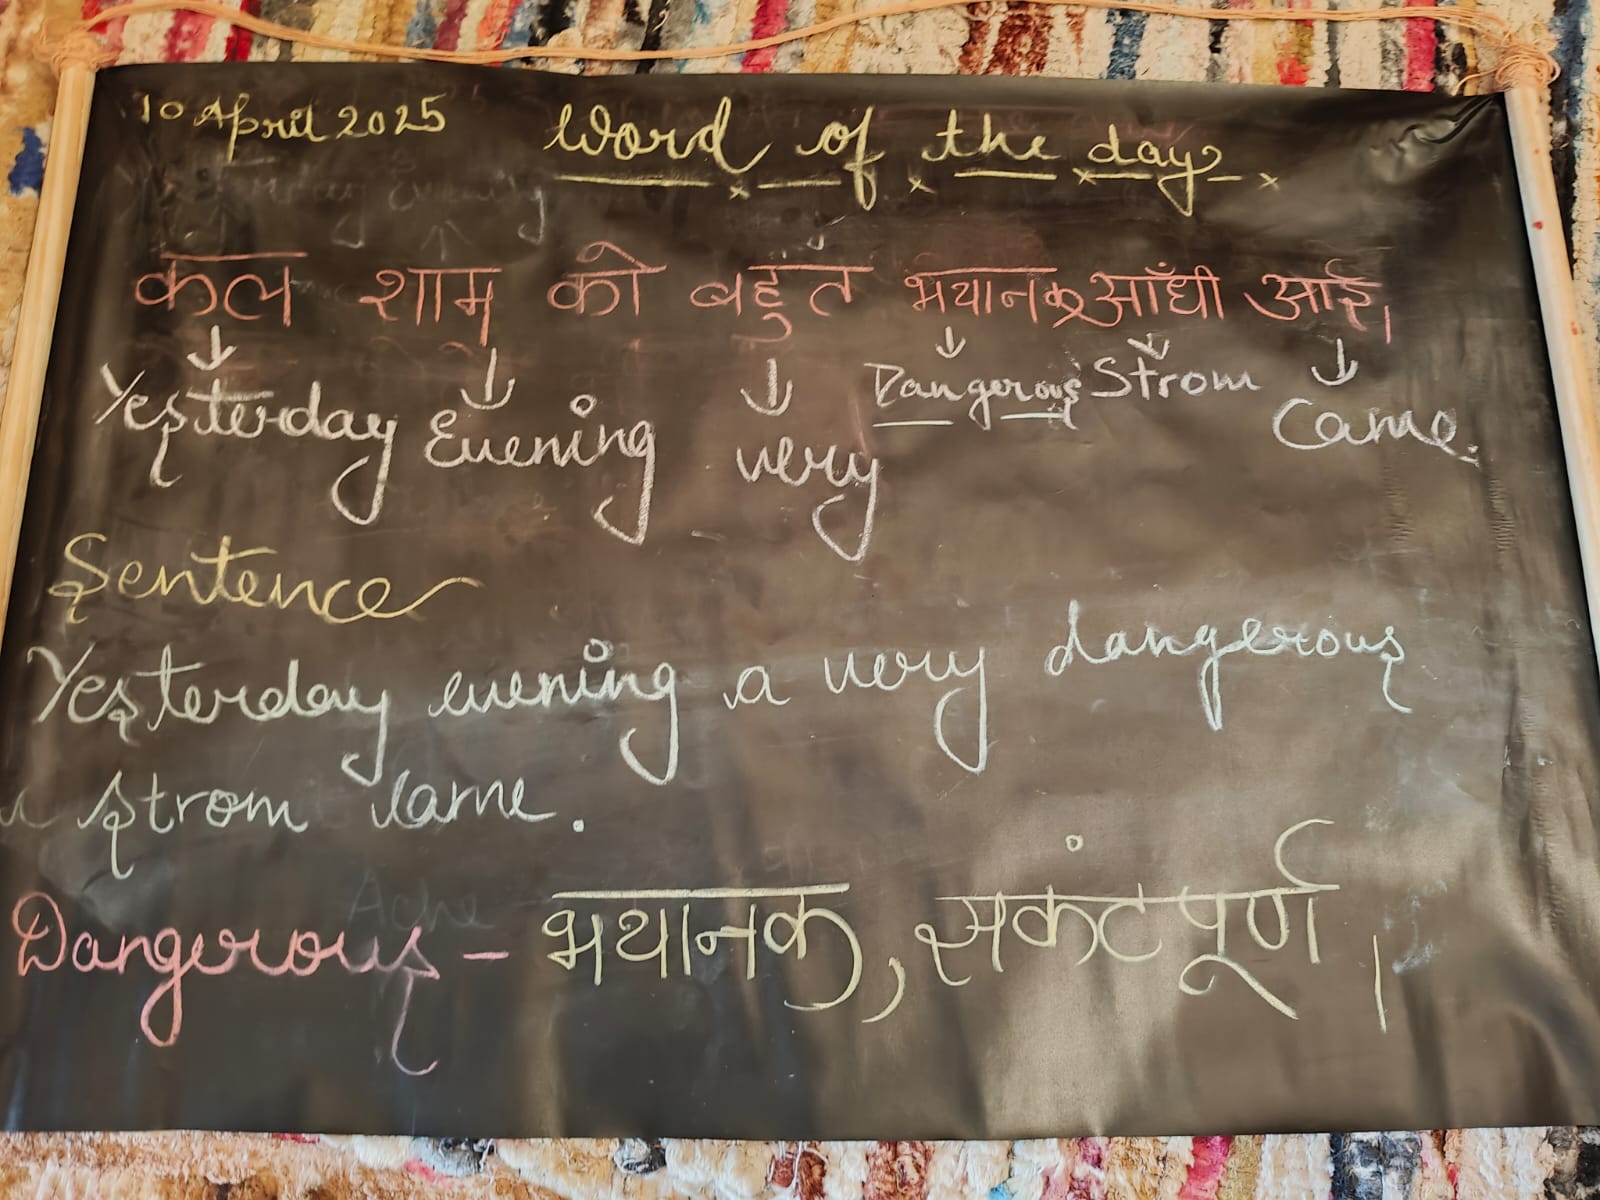 10 April 2025 Word of the day
कल शाम को बहुत भयानक आँधी आई।
Yesterday Evening very Dangerous Strom Came.
Sentence
Yesterday evening a very dangerous
strom came.
Dangerous - भयानक, सकंटपूर्ण।